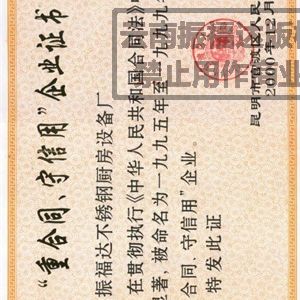 “重合同、守信用”企业证书
振福达不锈钢厨房设备厂
在贯彻执行《中华人民共和国合同法》
显著，被命名为一九九五年至一九九九
合同、守信用”企业。
特发此证
昆明市官渡区人民
2000年12月
云南振福达
禁止用作